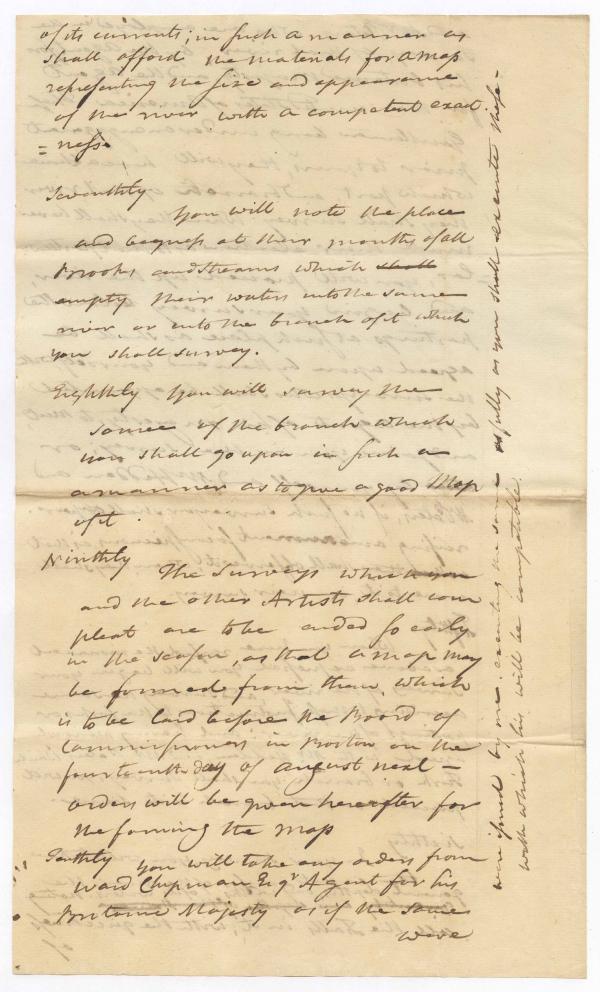 of its currents; in such a manner as
shall afford the materials for a map
representing the size and appearance
of the river with a competent exact
= ness.
Seventhly
You will note the place
and bigness at their mouths of all
Brooks and streams which shall
empty their waters into the same
river, or into the branch of it which
you shall survey.
Eighthly You will survey the
source of the branch which
you shall go upon in such a
a manner as to give a good Map
of it.
Ninthly
The Surveys which you
and the other Artists shall com
pleat are to be ended so early
in the season, as that a map may
be formed from them, which
is to be laid before the Board of
Commissioners in Boston on the
fourteenth day of august next –
orders will be given hereafter for
the forming the map
Tenthly you will take any orders from
Ward Chipman Esqr Agent for his
Britannic Majesty as if the same
were
were issued by me. executing the same as fully as you shall execute these –
with which his will be compatible.